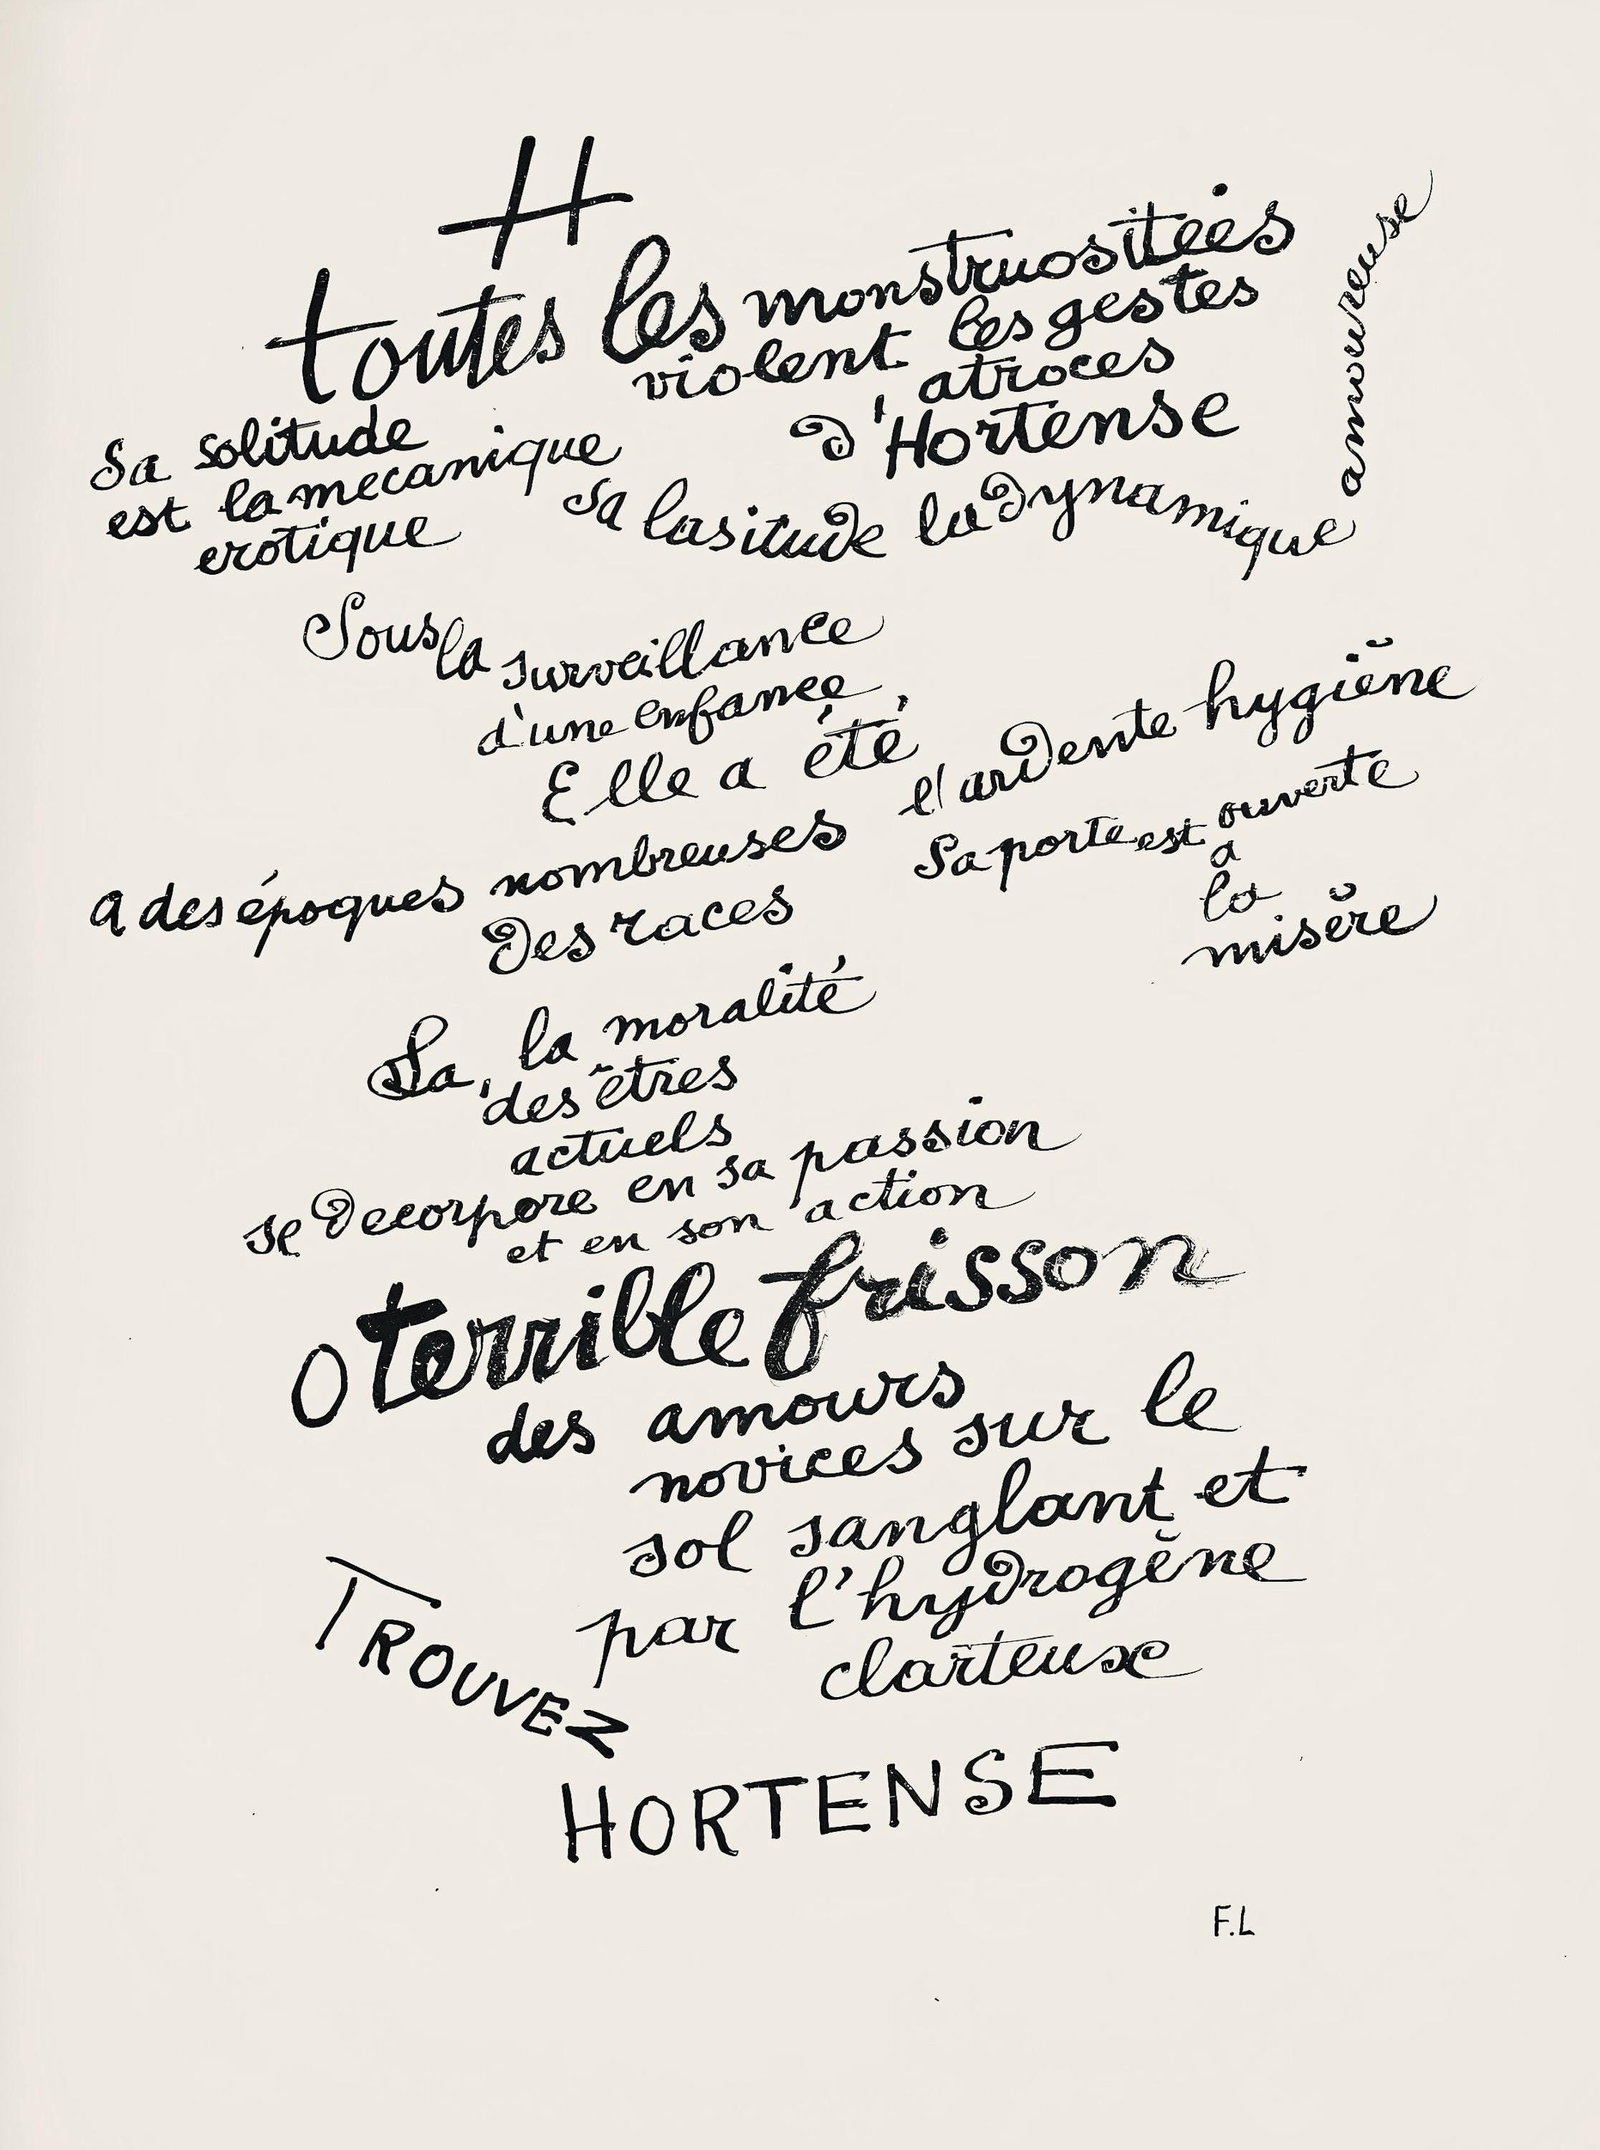 H
toutes les monstruositées
violent les gestes
atroces
d'Hortense
Sa solitude
est la mecanique
erotique
Sa lasitude la dynamique
amoureuse
Sous la surveillance
d'une enfance
Elle a été,
a des époques nombreuses
l'ardente hygiène
des races
Sa porte est ouverte
a
la
misère
La, la moralité
des êtres
actuels
se decorpore en sa passion
et en son action
O terrible frisson
des amours
novices sur le
sol sanglant et
par l'hydrogène
clarteuxe
TROUVEZ
HORTENSE
F.L